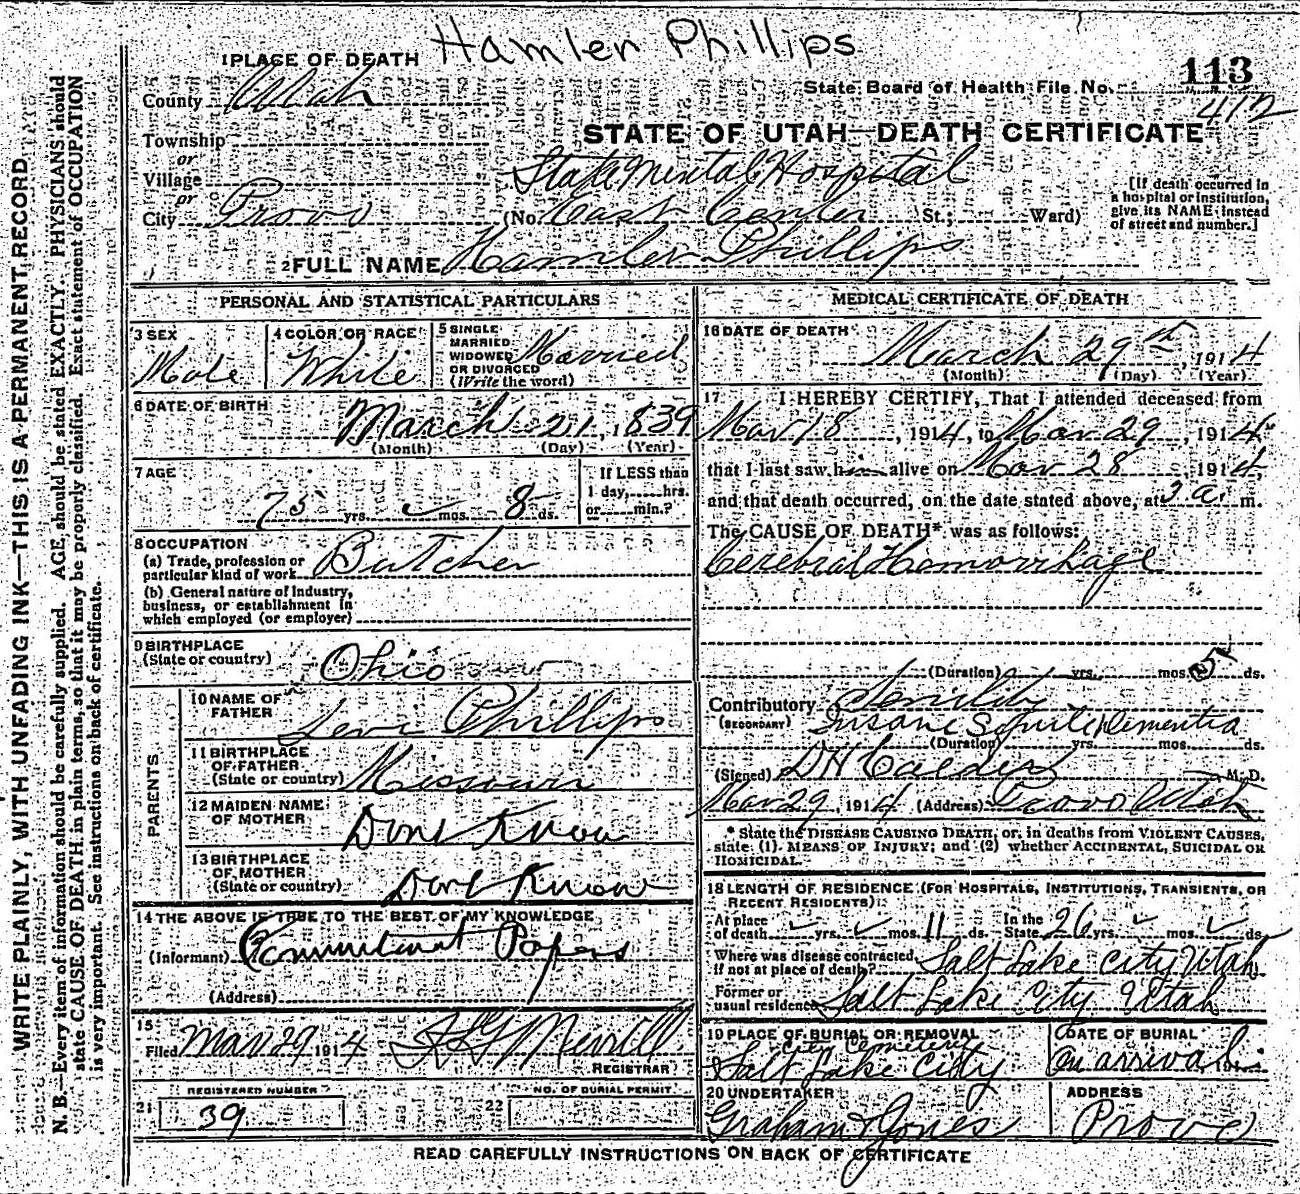 Hamler Phillips
1 PLACE OF DEATH
113
State Board of Health File No.
412
County Utah
STATE OF UTAH—DEATH CERTIFICATE
Township
or
Village
or
City Provo
State Mental Hospital
(No. East Center St.; Ward)
[If death occurred in
a hospital or institution,
give its NAME instead
of street and number.]
2 FULL NAME Hamler Phillips
PERSONAL AND STATISTICAL PARTICULARS
3 SEX
Male
4 COLOR OR RACE
White
5 SINGLE
MARRIED
WIDOWED
OR DIVORCED
(Write the word)
Married
6 DATE OF BIRTH
March 21, 1839
(Month) (Day) (Year)
7 AGE
75 yrs. mos. 8 ds.
If LESS than
1 day, hrs.
or min.?
8 OCCUPATION
(a) Trade, profession or
particular kind of work Butcher
(b) General nature of Industry,
business, or establishment in
which employed (or employer)
9 BIRTHPLACE
(State or country) Ohio
PARENTS
10 NAME OF
FATHER
Levi Phillips
11 BIRTHPLACE
OF FATHER
(State or country) Missouri
12 MAIDEN NAME
OF MOTHER
Dont Know
13 BIRTHPLACE
OF MOTHER
(State or country) Dont Know
14 THE ABOVE IS TRUE TO THE BEST OF MY KNOWLEDGE
(Informant) Commitment Papers
(Address)
15
Filed Mar 29 1914 Merrill
REGISTRAR
REGISTERED NUMBER
21 39
NO. OF BURIAL PERMIT
22
MEDICAL CERTIFICATE OF DEATH
16 DATE OF DEATH
March 29th, 1914
(Month) (Day) (Year)
17 I HEREBY CERTIFY, That I attended deceased from
Mar 18, 1914, to Mar 29, 1914
that I last saw him alive on Mar 28, 1914
and that death occurred, on the date stated above, at 3 a. m.
The CAUSE OF DEATH* was as follows:
Cerebral Hemorrhage
(Duration) yrs. mos. ds.
Contributory Senility
(SECONDARY) Insane Senile Dementia
(Duration) yrs. mos. ds.
(Signed) D H Calder M.D.
Mar 29, 1914 (Address) Provo Utah
* State the DISEASE CAUSING DEATH, or, in deaths from VIOLENT CAUSES,
state (1) MEANS OF INJURY; and (2) whether ACCIDENTAL, SUICIDAL OR
HOMICIDAL.
18 LENGTH OF RESIDENCE (FOR HOSPITALS, INSTITUTIONS, TRANSIENTS, OR
RECENT RESIDENTS)
At place
of death yrs. mos. 11 ds.
In the
State 26 yrs. mos. ds.
Where was disease contracted
if not at place of death? Salt Lake City Utah
Former or
usual residence Salt Lake City Utah
19 PLACE OF BURIAL OR REMOVAL
City Cemetery
Salt Lake City
DATE OF BURIAL
On arrival 191
20 UNDERTAKER
Graham & Jones
ADDRESS
Provo
READ CAREFULLY INSTRUCTIONS ON BACK OF CERTIFICATE
WRITE PLAINLY, WITH UNFADING INK—THIS IS A PERMANENT RECORD
N. B.—Every item of information should be carefully supplied. AGE should be stated EXACTLY. PHYSICIANS should
state CAUSE OF DEATH in plain terms, so that it may be properly classified. Exact statement of OCCUPATION
is very important. See instructions on back of certificate.